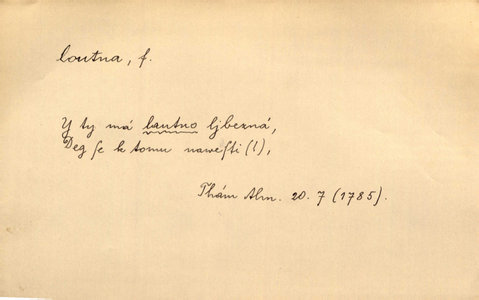 loutna, f.
Y ty má lautno ljbezná,
Deg ſe k tomu naweſti(l),
Thám Alm. 20. 7 (1785).